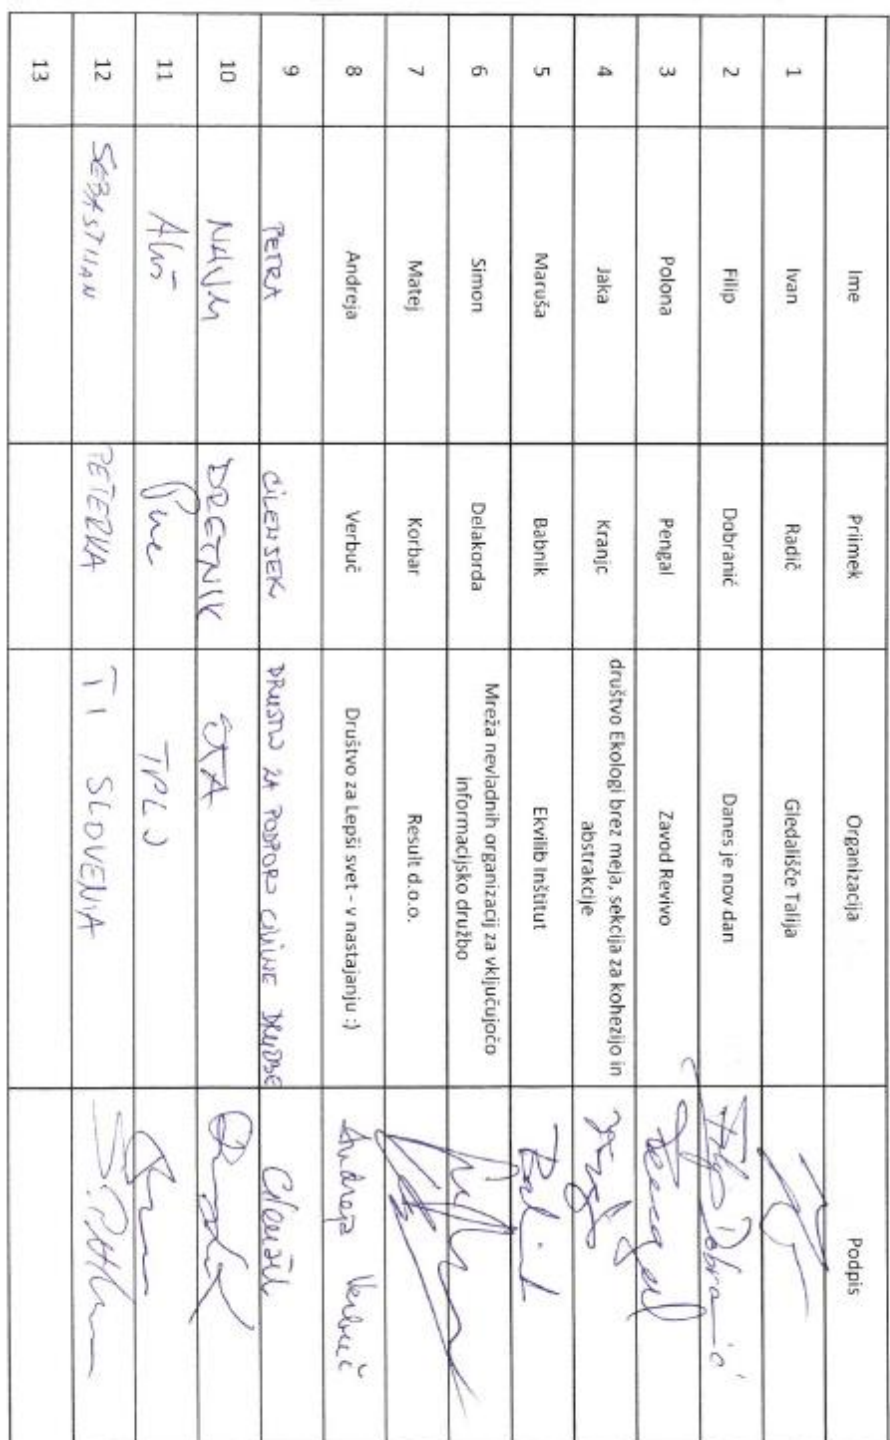 Ime Priimek Organizacija Podpis
1 Ivan Radič Gledališče Talija
2 Filip Dobranić Danes je nov dan Filip Dobranić
3 Polona Pengal Zavod Revivo Pengal
4 Jaka Kranjc društvo Ekologi brez meja, sekcija za kohezijo in
abstrakcije
5 Maruša Babnik Ekvilib Inštitut
6 Simon Delakorda Mreža nevladnih organizacij za vključujočo
informacijsko družbo
7 Matej Korbar Result d.o.o.
8 Andreja Verbuč Društvo za Lepši svet - v nastajanju :) Andreja Verbuč
9 PETRA CILENŠEK DRUŠTVO ZA PODPORO CIVILNE DRUŽBE
10 DRETNIK STA
11 TPLJ
12 SEBASTIJAN PETERKA TI SLOVENIA
13